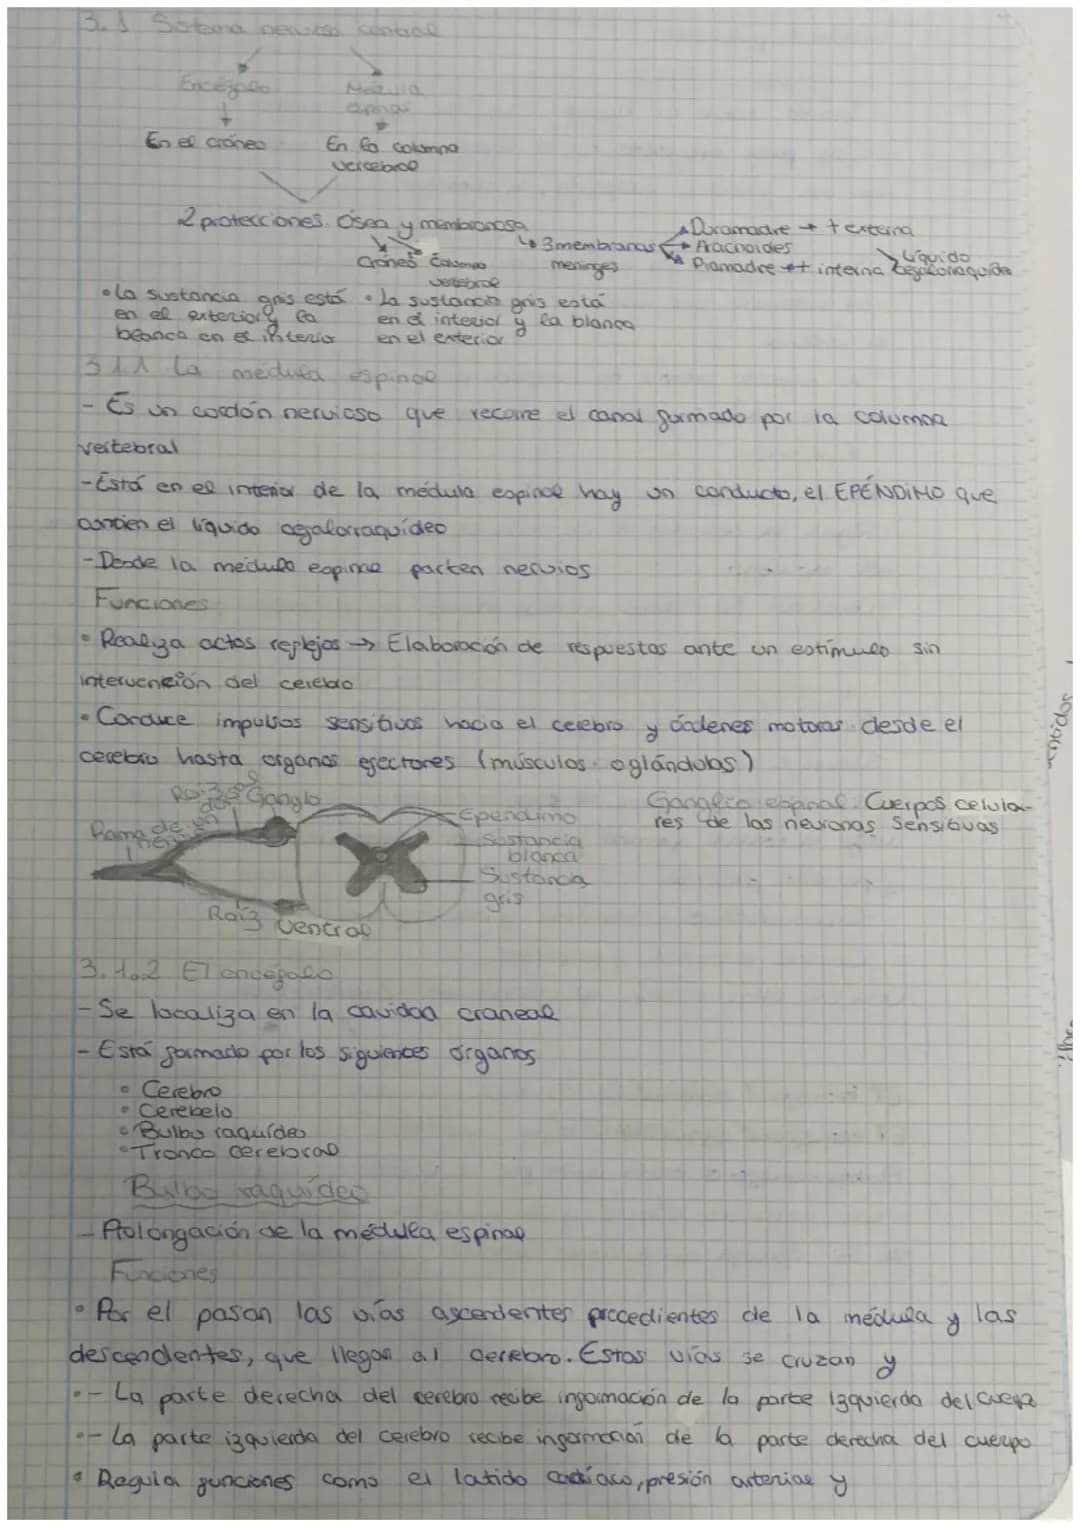 3.1 Sistema nervioso central
Encéfalo Médula
espinal
En el cráneo En la columna
vertebral
2 protecciones. Ósea y membranosa
Duramadre → + externa
↳ 3 membranas → Aracnoides
meninges Piamadre → + interna
Líquido
cefalorraquídeo
Cráneo Columna
vertebral
• La sustancia gris está • La sustancia gris está
en el exterior y la en el interior y la blanca
blanca en el interior en el exterior
3.1.1 La médula espinal
- Es un cordón nervioso que recorre el canal formado por la columna
vertebral
- Está en el interior de la médula espinal hay un conducto, el EPÉNDIMO que
contien el líquido cefalorraquídeo
- Desde la médula espinal parten nervios
Funciones
• Realiza actos reflejos → Elaboración de respuestas ante un estímulo sin
intervención del cerebro
• Conduce impulsos sensitivos hacia el cerebro y órdenes motoras desde el
cerebro hasta órganos efectores (músculos o glándulas)
Ganglio
Rama de un
nervio
Ependimo
Sustancia
blanca
Sustancia
gris
Raíz ventral
Ganglio espinal. Cuerpos celula-
res de las neuronas sensitivas
3.1.2 El encéfalo
- Se localiza en la cavidad craneal
- Está formado por los siguientes órganos
• Cerebro
• Cerebelo
• Bulbo raquídeo
• Tronco cerebral
Bulbo raquídeo
- Prolongación de la médula espinal
Funciones
• Por el pasan las vías ascendentes procedientes de la médula y las
descendentes, que llegan al cerebro. Estas vías se cruzan y
• - La parte derecha del cerebro recibe información de la parte izquierda del cuerpo
• - La parte izquierda del cerebro recibe información de la parte derecha del cuerpo
• Regula funciones como el latido cardíaco, presión arterial y